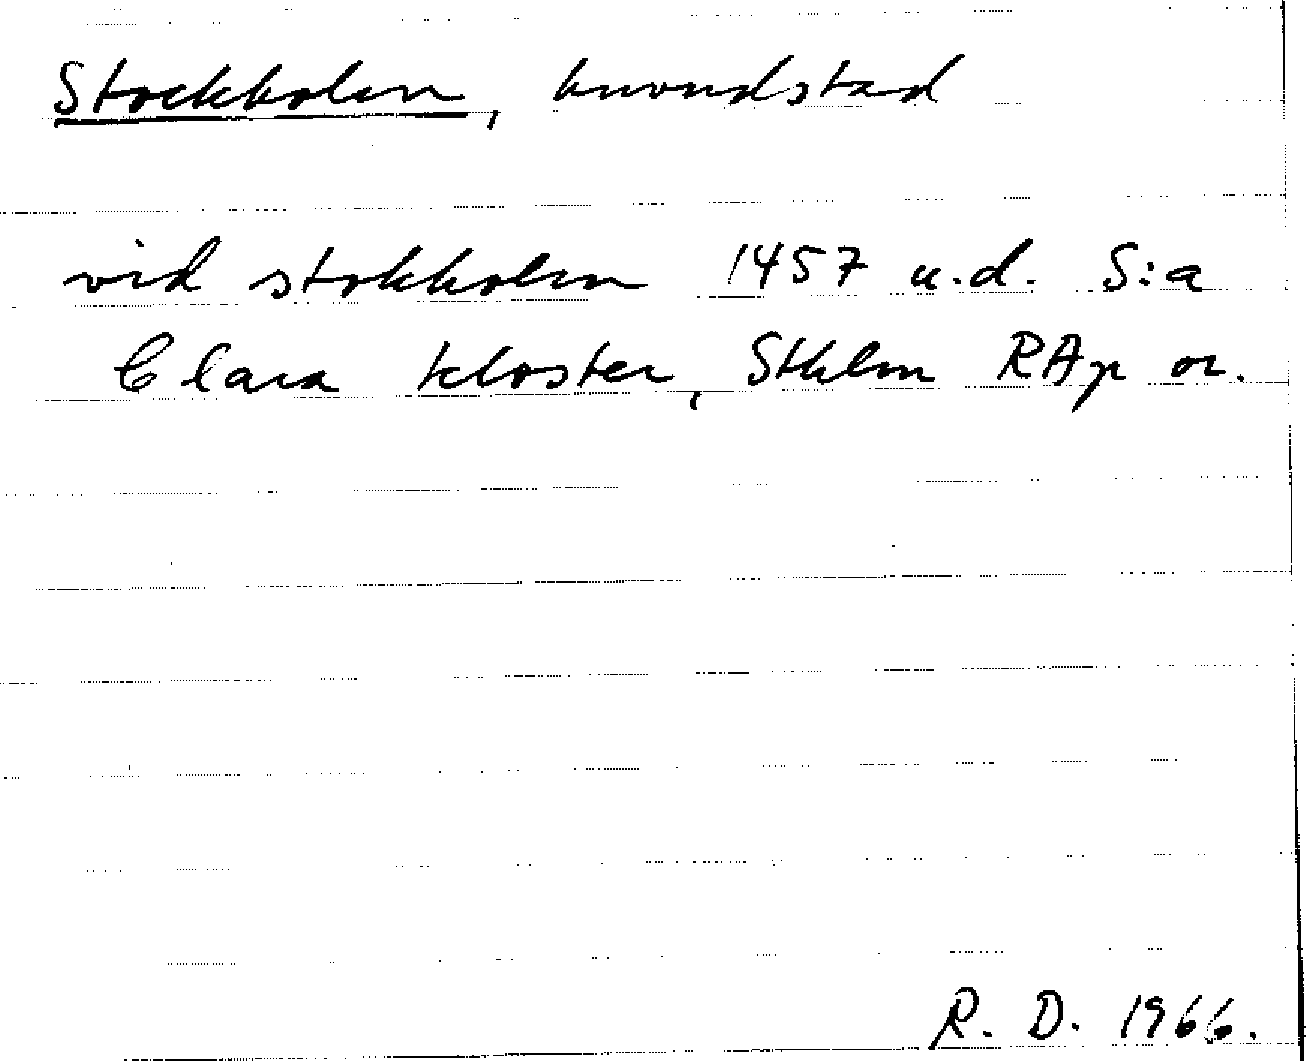 Stockholm, huvudstad
vid stokholm 1457 u.d. S:a
Clara kloster, Sthlm RAp or.
R. D. 1966.